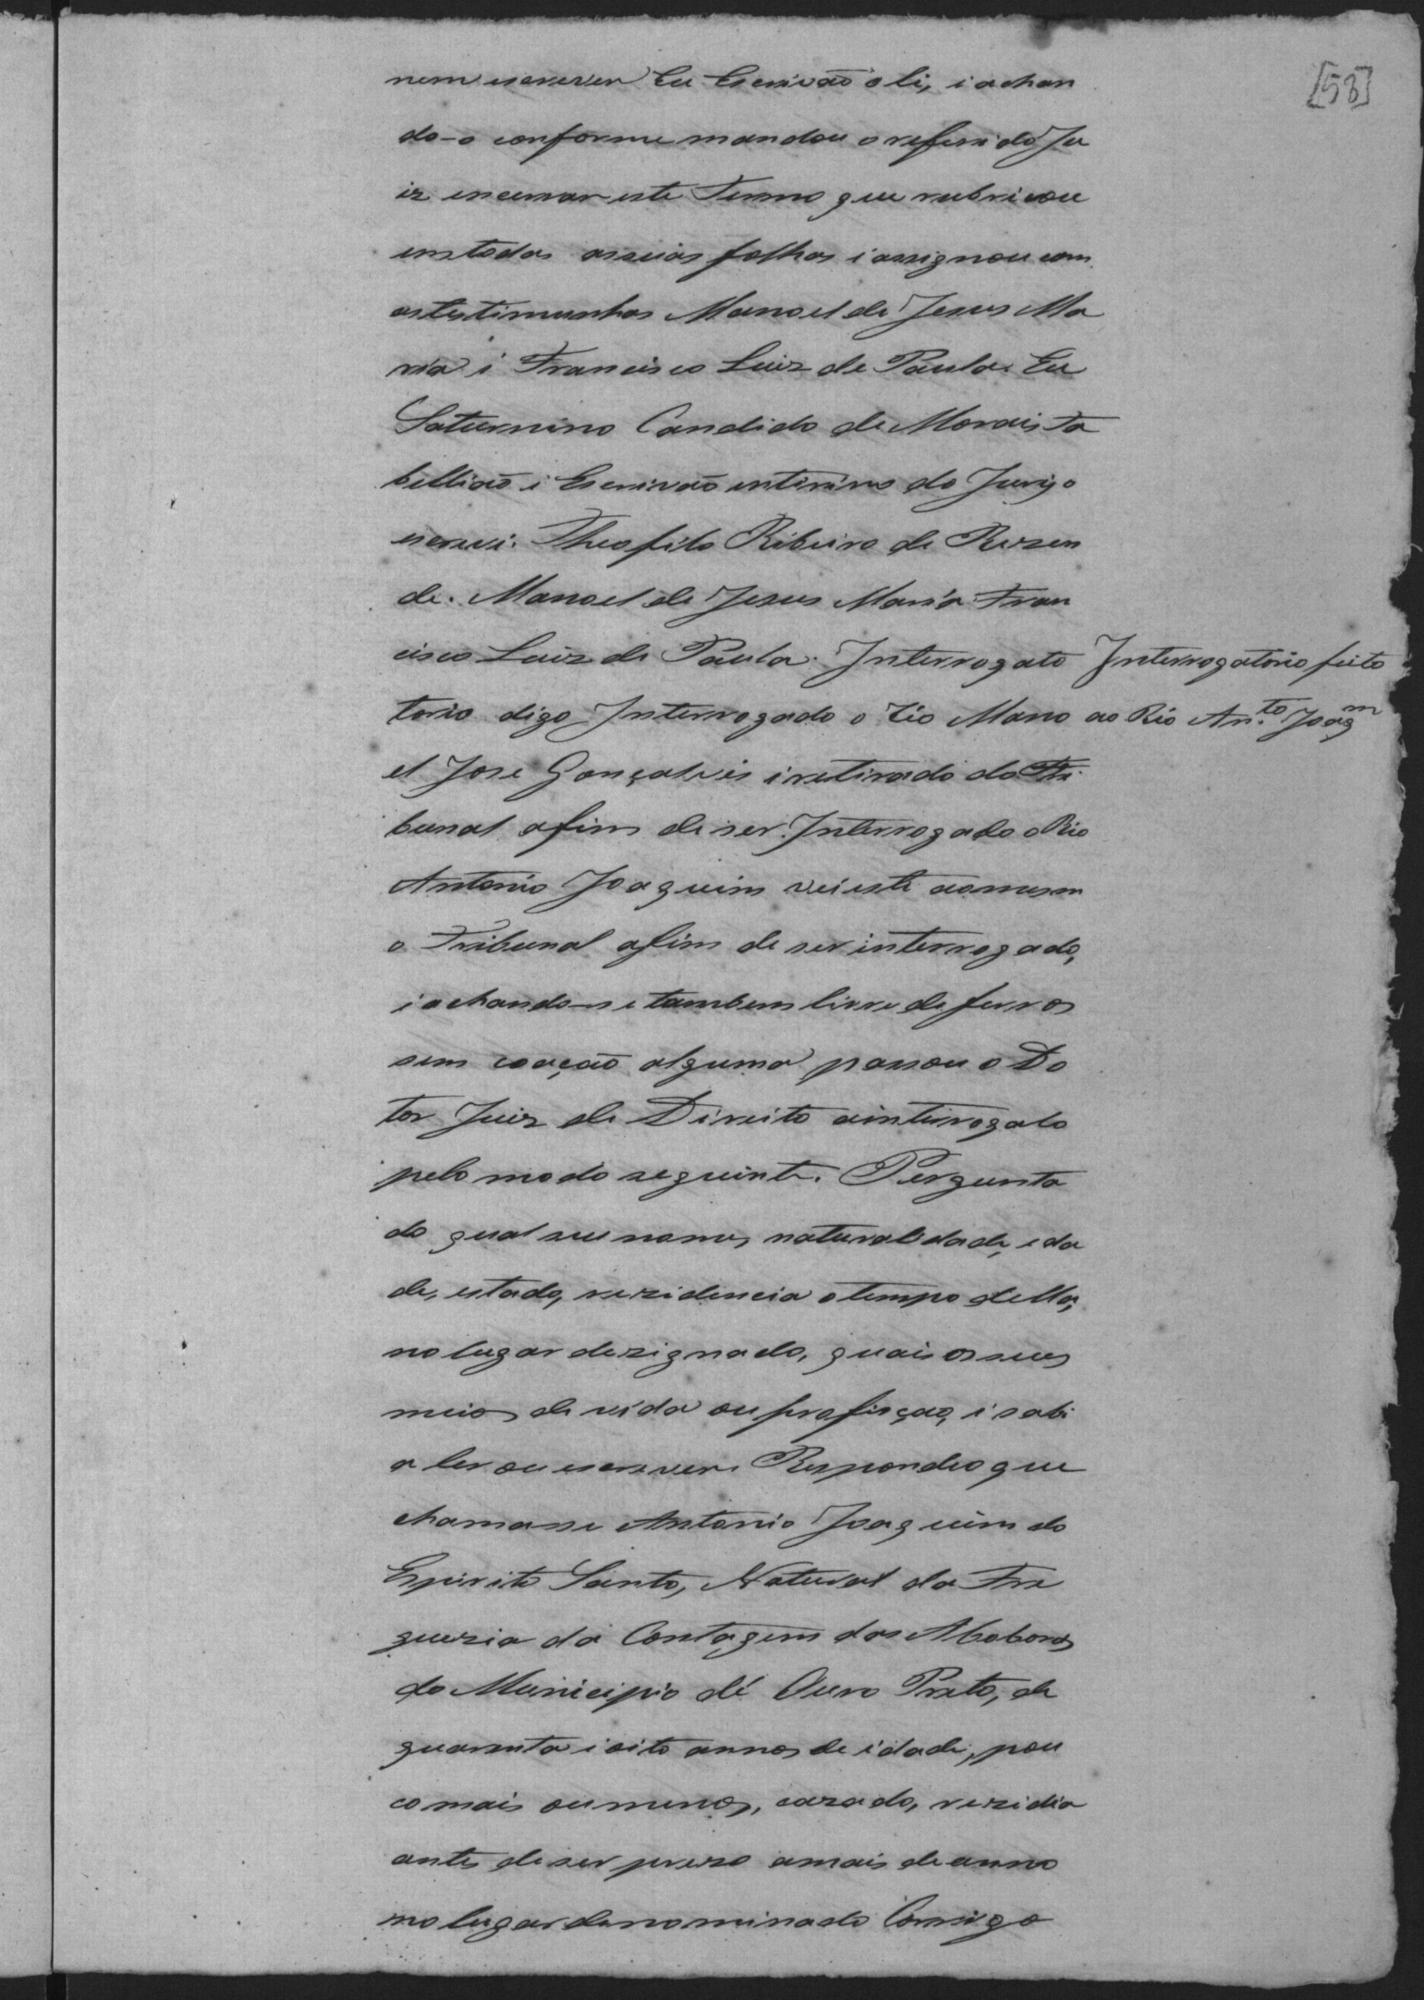 [53]
nem escrever Eu Escrivão o li, i achan
do-o conforme mandou o referido Ju
iz encerrar este Termo que rubricou
em todas as suas folhas i assignou com
as testimunhas Manoel de Jesus Ma
ria i Francisco Luiz de Paula. Eu
Saturnino Candido de Morais Ta
bellião i Escrivão interino do Jury o
escrevi. Theofilo Ribeiro de Rezen
de. Manoel de Jesus Maria Fran
cisco Luiz de Paula. Interrogato
Interrogatorio feito
torio digo Interrogado o Rio Mano
ao Rio An.to Joaq.m
el Jose Gonçalvis i retirado do Tri
bunal afim de ser Interrogado o Rio
Antonio Joaquim vei este ao mesm
o Tribunal afim de ser interrogado,
i achando-se tambem livre de ferros
sem coação alguma passou o Do
tor Juiz de Direito a interrogalo
pelo modo seguinte. Pergunta
do qual seu nome, naturalidade, ida
de, estado, rezidencia o tempo della,
no lugar dezignado, quais os seus
meios de vida ou profição, i sabi
a ler ou escrever. Respondeo que
chamasse Antonio Joaquim do
Espirito Santo, Natural da Fre
guezia da Contagem das Aboboras
do Municipio de Ouro Preto, de
quarenta i oito annos de idade, pou
co mais ou menos, cazado, rezidia
antes de ser prezo a mais de anno
no lugar denominado Corrigo